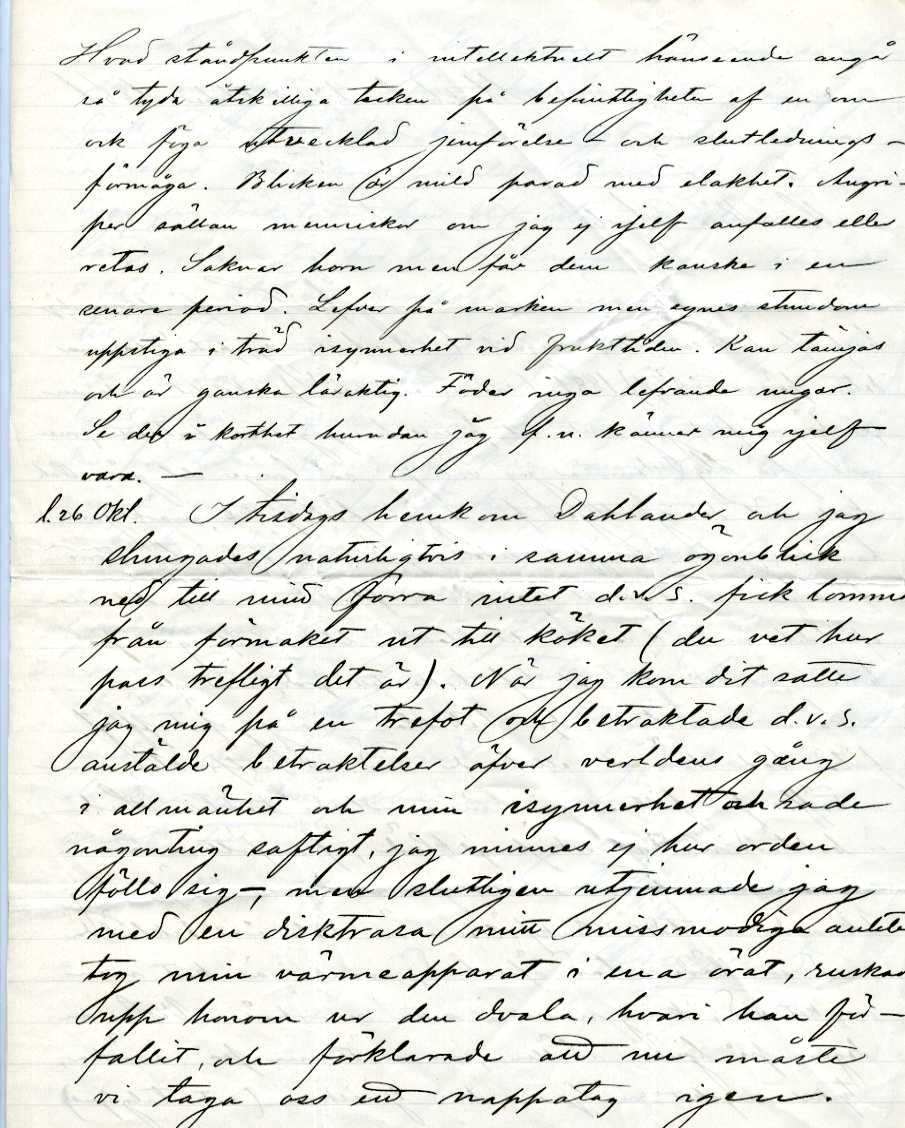 Hvad ståndpunkten i intellektuelt hänseende angår
så tyda åtskilliga tecken på befintligheten af en om
ock föga utvecklad jemförelse - och slutlednings -
förmåga. Blicken är mild parad med elakhet. Angri-
per sällan menniskor om jag ej sjelf anfalles eller
retas. Saknar horn men får dem kanske i en
senare period. Lefver på marken men synes stundom
uppstiga i träd isynnerhet vid frukttiden. Kan tämjas
och är ganska läraktig. Föder inga lefvande ungar.
Se der i korthet hurudan jag f.n. känner mig sjelf
vara. —
d. 26 Okt. I tisdags hemkom Dahlander och jag
slungades naturligtvis i samma ögonblick
ned till mitt förra intet d.v.s. fick komma
från förmaket ut till köket (du vet hur
pass trefligt det är). När jag kom dit satte
jag mig på en trefot och betraktade d.v.s.
anstälde betraktelser öfver verldens gång
i allmänhet och min isynnerhet och sade
någonting saftigt, jag minnes ej hur orden
föllo sig —, men slutligen utjemnade jag
med en disktrasa mitt missmodiga anlete
tog min värmeapparat i ena örat, ruskade
upp honom ur den dvala, hvari han för-
fallit, och förklarade att nu måste
vi taga oss ett nappatag igen.